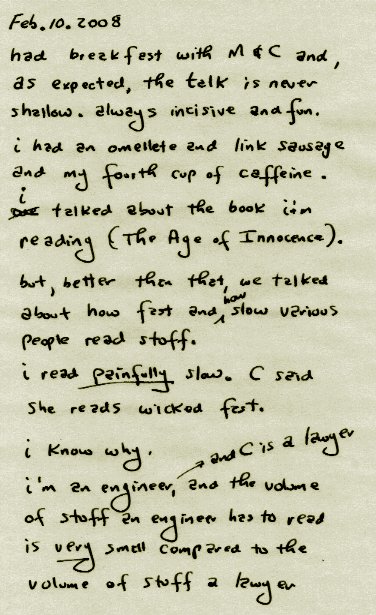 Feb. 10. 2008
had breakfest with M & C and,
as expected, the talk is never
shallow. always incisive and fun.
i had an omellete and link sausage
and my fourth cup of caffeine.
i talked about the book i'm
reading (The Age of Innocence).
but, better than that, we talked
about how fast and how slow various
people read stuff.
i read painfully slow. C said
she reads wicked fast.
i know why.
i'm an engineer, and C is a lawyer and the volume
of stuff an engineer has to read
is very small compared to the
volume of stuff a lawyer